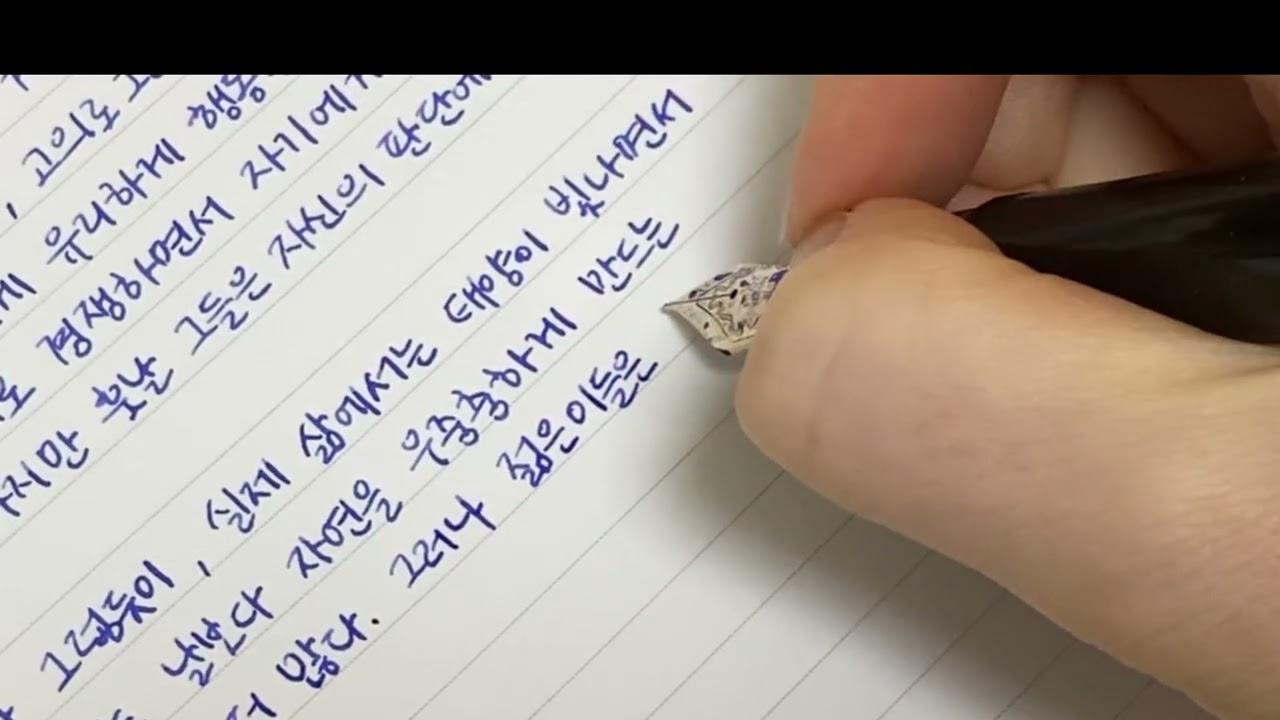 , 고의로
유리하게 행동
경쟁하면서 자기에게
하지만 훗날 그들은 자신의 판단에
그렇듯이, 실제 삶에서는 태양이 빛나면서
날보다 자연을 우중충하게 만드는
더 많다. 그러나 젊은이들은